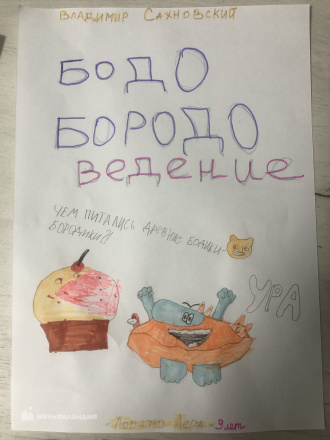 Владимир Сахновский
БОДО
БОРОДО
ведение
ЧЕМ ПИТАЛИСЬ ДРЕВНИЕ БОДИКИ-
БОРОДИКИ?!
УРА
Лера - 9 лет